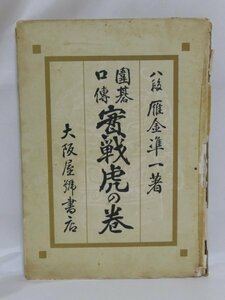 八段 雁金準一著
圍碁
口傳
實戦虎の巻
大阪屋號書店